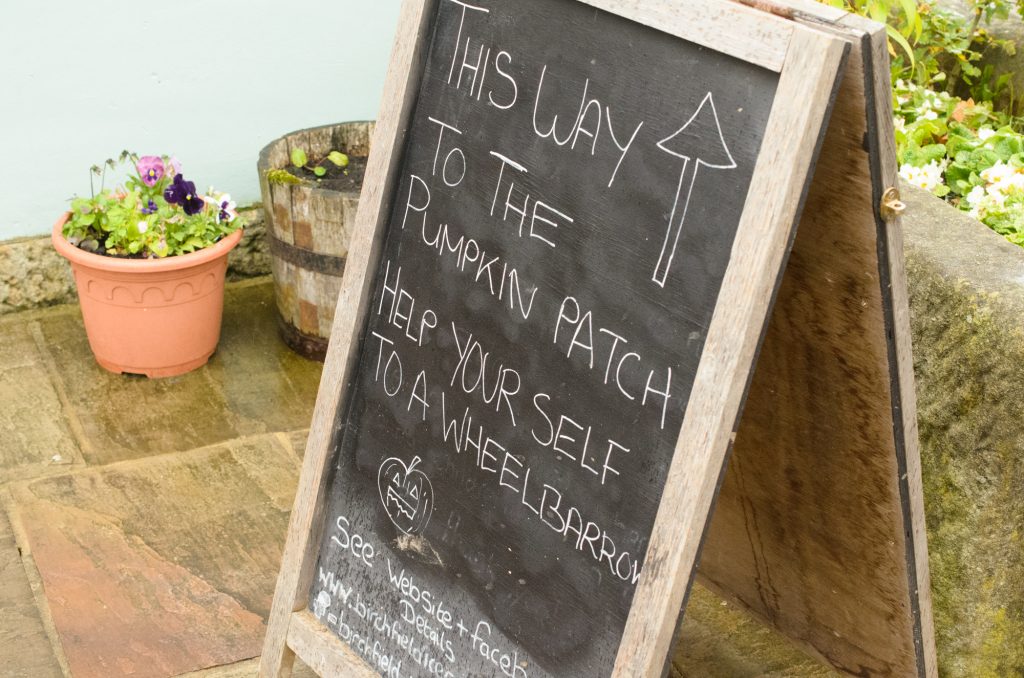 THIS WAY
TO THE
PUMPKIN PATCH
HELP YOUR SELF
TO A WHEELBARROW
See Website + faceb
Details
www.birchfieldice
=birchfield